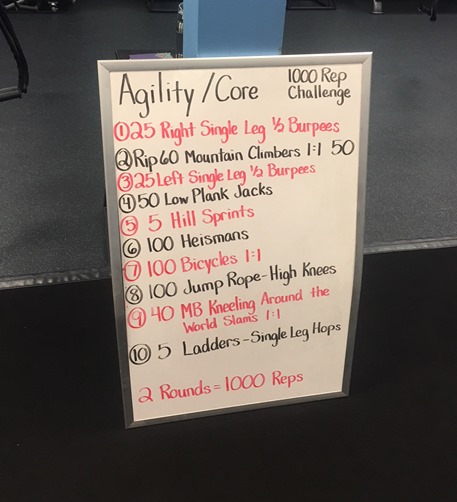 Agility/Core
1000 Rep
Challenge
① 25 Right Single Leg ½ Burpees
② Rip60 Mountain Climbers 1:1 50
③ 25 Left Single Leg ½ Burpees
④ 50 Low Plank Jacks
⑤ 5 Hill Sprints
⑥ 100 Heismans
⑦ 100 Bicycles 1:1
⑧ 100 Jump Rope-High Knees
⑨ 40 MB Kneeling Around the
World Slams 1:1
⑩ 5 Ladders-Single Leg Hops
2 Rounds = 1000 Reps